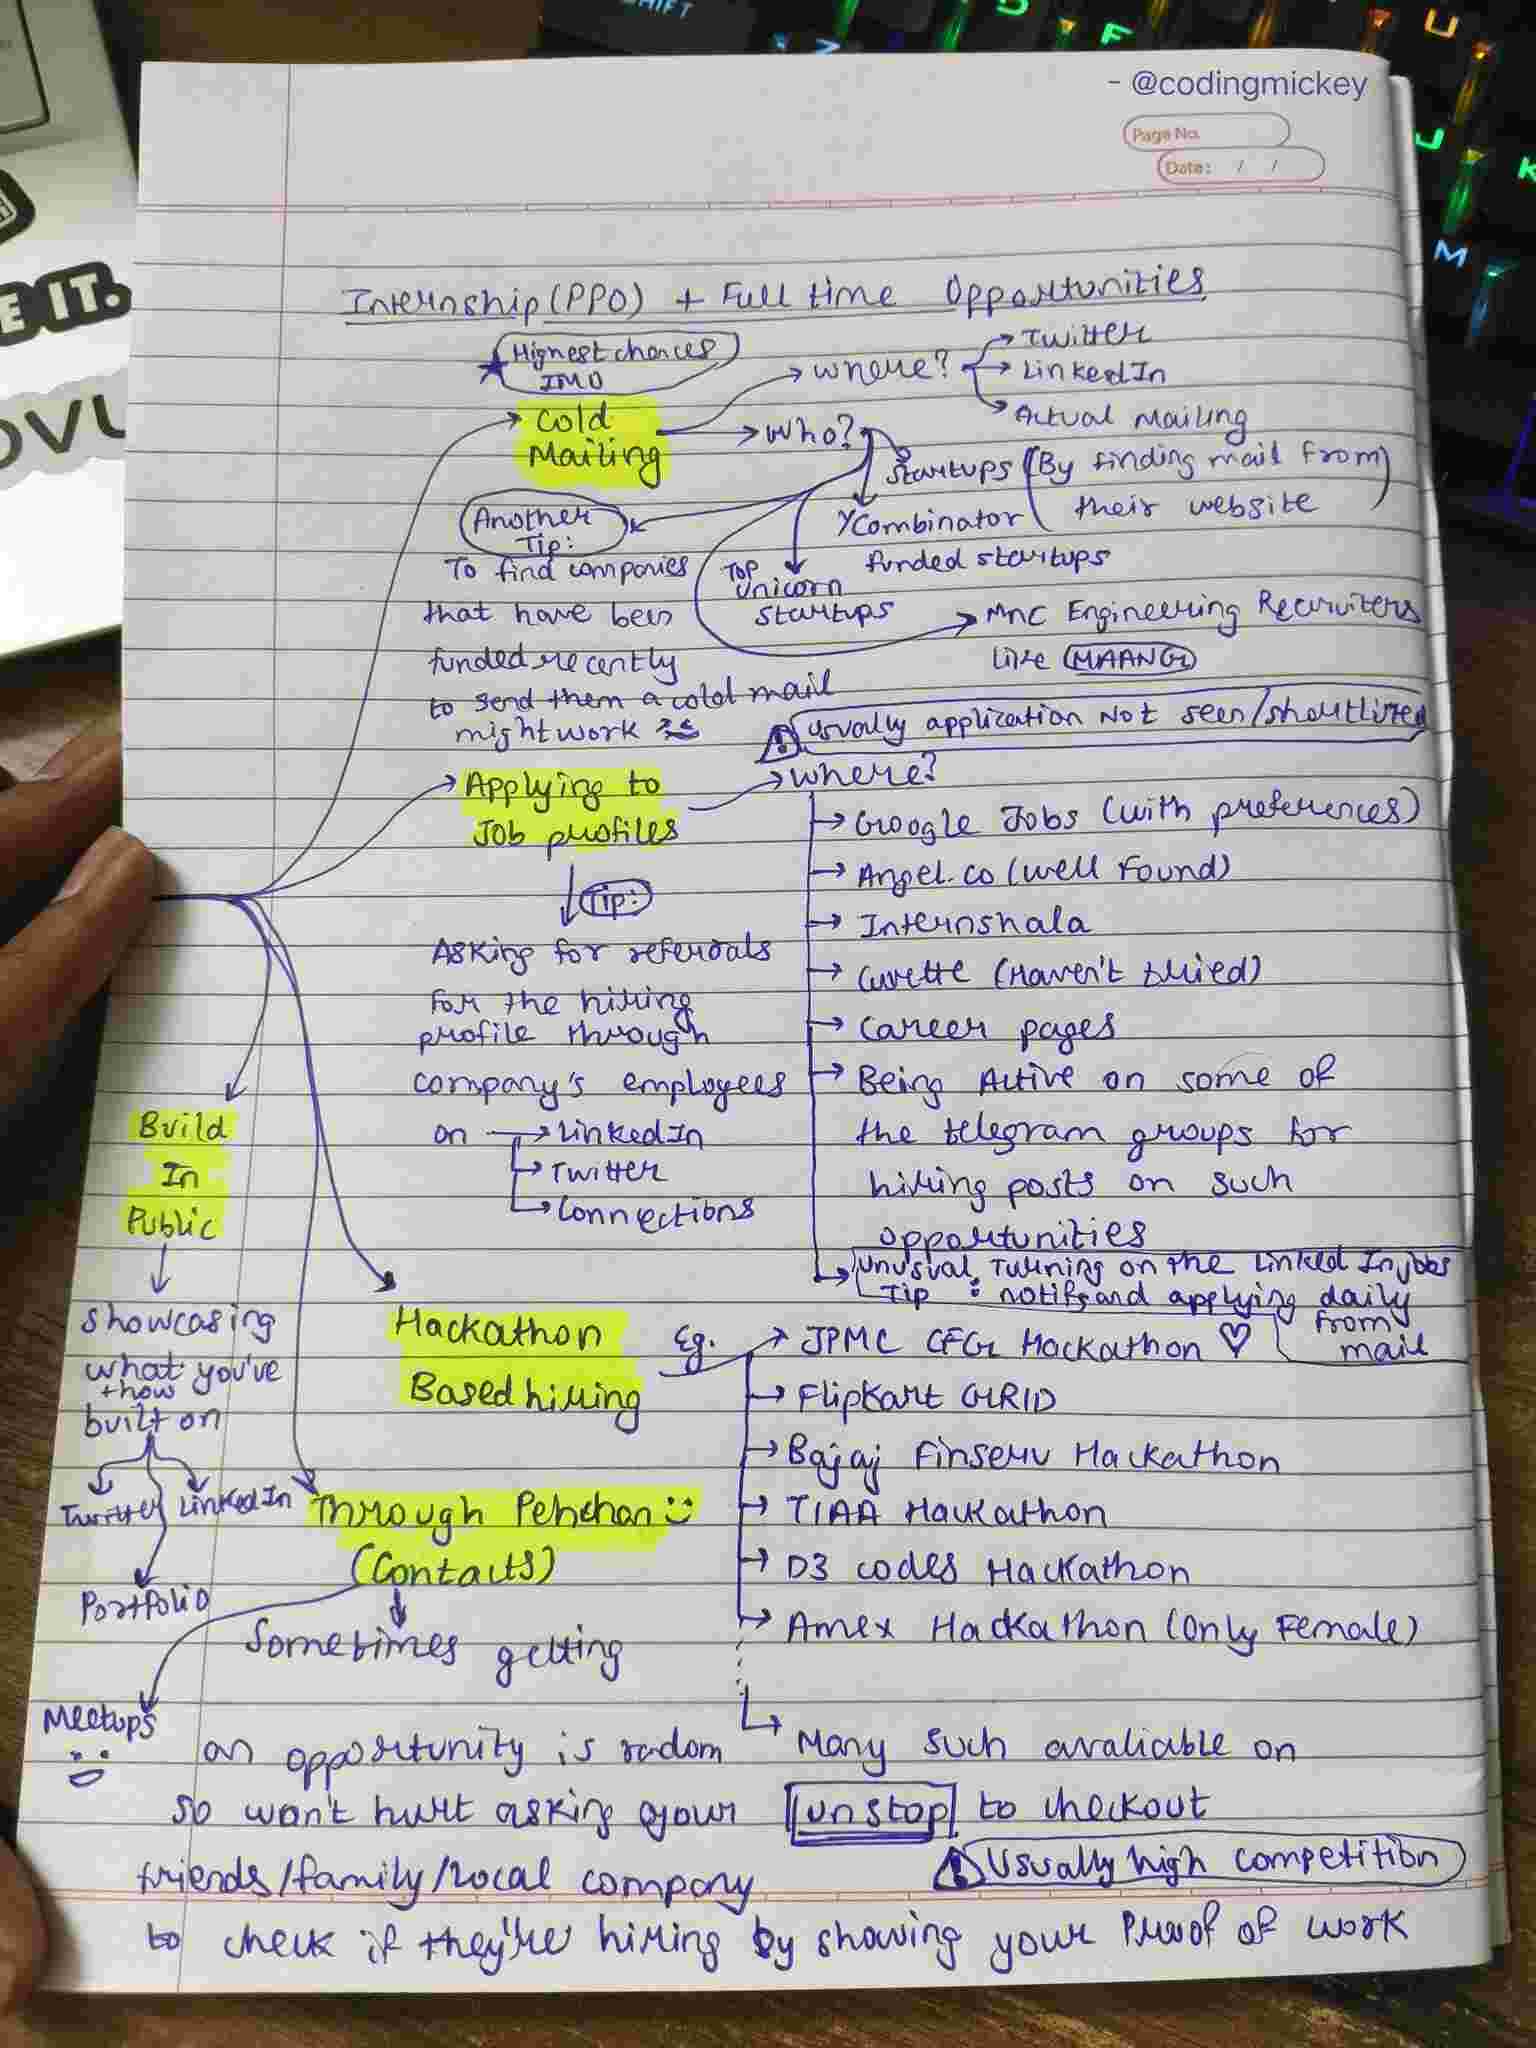 - @codingmickey
Page No.
Date: / /
Internship (PPO) + Full time Opportunities
Highest chances
IMO
Cold
Mailing
where?
Twitter
LinkedIn
Actual Mailing
Who?
Startups (By finding mail from
their website)
YCombinator
funded startups
Top
Unicorn
startups
MNC Engineering Recruiters
like MAANG
Another
Tip:
To find companies
that have been
funded recently
to send them a cold mail
might work
Usually application Not seen/shortlisted
Applying to
Job profiles
where?
Google Jobs (with preferences)
Angel.co (well found)
Internshala
Cuvette (Haven't tried)
Career pages
Being Active on some of
the telegram groups for
hiring posts on such
opportunities
Unusual Tip : Turning on the LinkedIn jobs
notifs and applying daily
from
mail
Tip:
Asking for referrals
for the hiring
profile through
company's employees
on
LinkedIn
Twitter
Connections
Build
In
Public
showcasing
what you've
+ how
built on
Twitter
LinkedIn
Portfolio
Hackathon
Based hiring
Eg.
JPMC CFG Hackathon ♡
Flipkart GRID
Bajaj Finserv Hackathon
TIAA Hackathon
D3 codes Hackathon
Amex Hackathon (Only Female)
Many such avaliable on
unstop to checkout
Usually high competition
Through Pehchan :)
(Contacts)
Meetups
Sometimes getting
an opportunity is radom
so won't hurt asking your
friends/family/local company
to check if they're hiring by showing your Proof of work
SHIFT
Z
D
F
U
J
K
M
E IT.